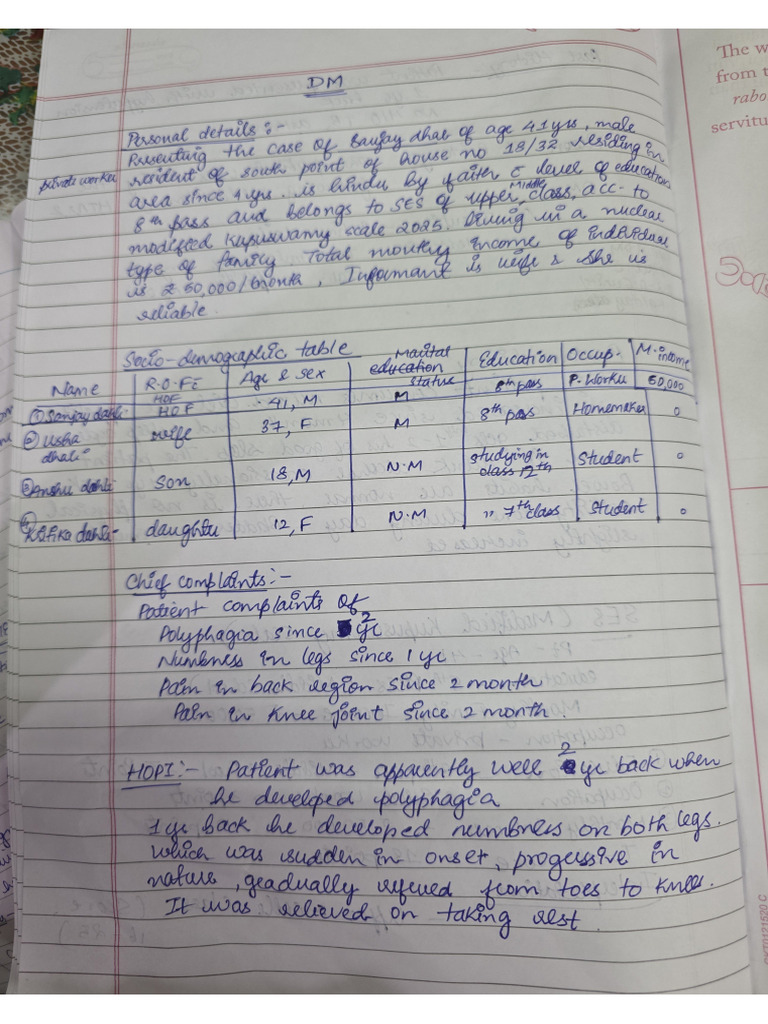 DM
Personal details :-
Presenting the case of Sanjay dhali of age 41 yrs, male
private worker
resident of south point of house no 18/32 residing in
area since 4 yrs. is hindu by faith c̄ level of education
8th pass and belongs to SES of upper Middle class, acc. to
modified Kupuswamy scale 2025. Living in a nuclear
type of family Total monthly income of individual
is ₹ 50,000/month, Informant is wife & she is
reliable.
Socio-demographic table
Name R.O.F.I Age & sex Marital education status Education Occup. M. income
① Sanjay dahli HOF HOF 41, M M 8th pass P. Worker 50,000
② Usha dhali wife 37, F M 8th pass Homemaker 0
③ Anshu dahli son 18, M N.M studying in class 12th Student 0
④ Kritika dahli daughter 12, F N.M " 7th class Student 0
Chief complaints :-
Patient complaints of
Polyphagia since 2 yr
Numbness in legs since 1 yr
Pain in back region since 2 month
Pain in Knee joint since 2 month.
HOPI :- Patient was apparently well 2 yr back when
he developed polyphagia
1 yr back he developed numbness on both legs.
which was sudden in onset, progessive in
nature, gradually refered from toes to knees.
It was relieved on taking rest.
The w
from t
rabo
servitu
CKT0121520 C